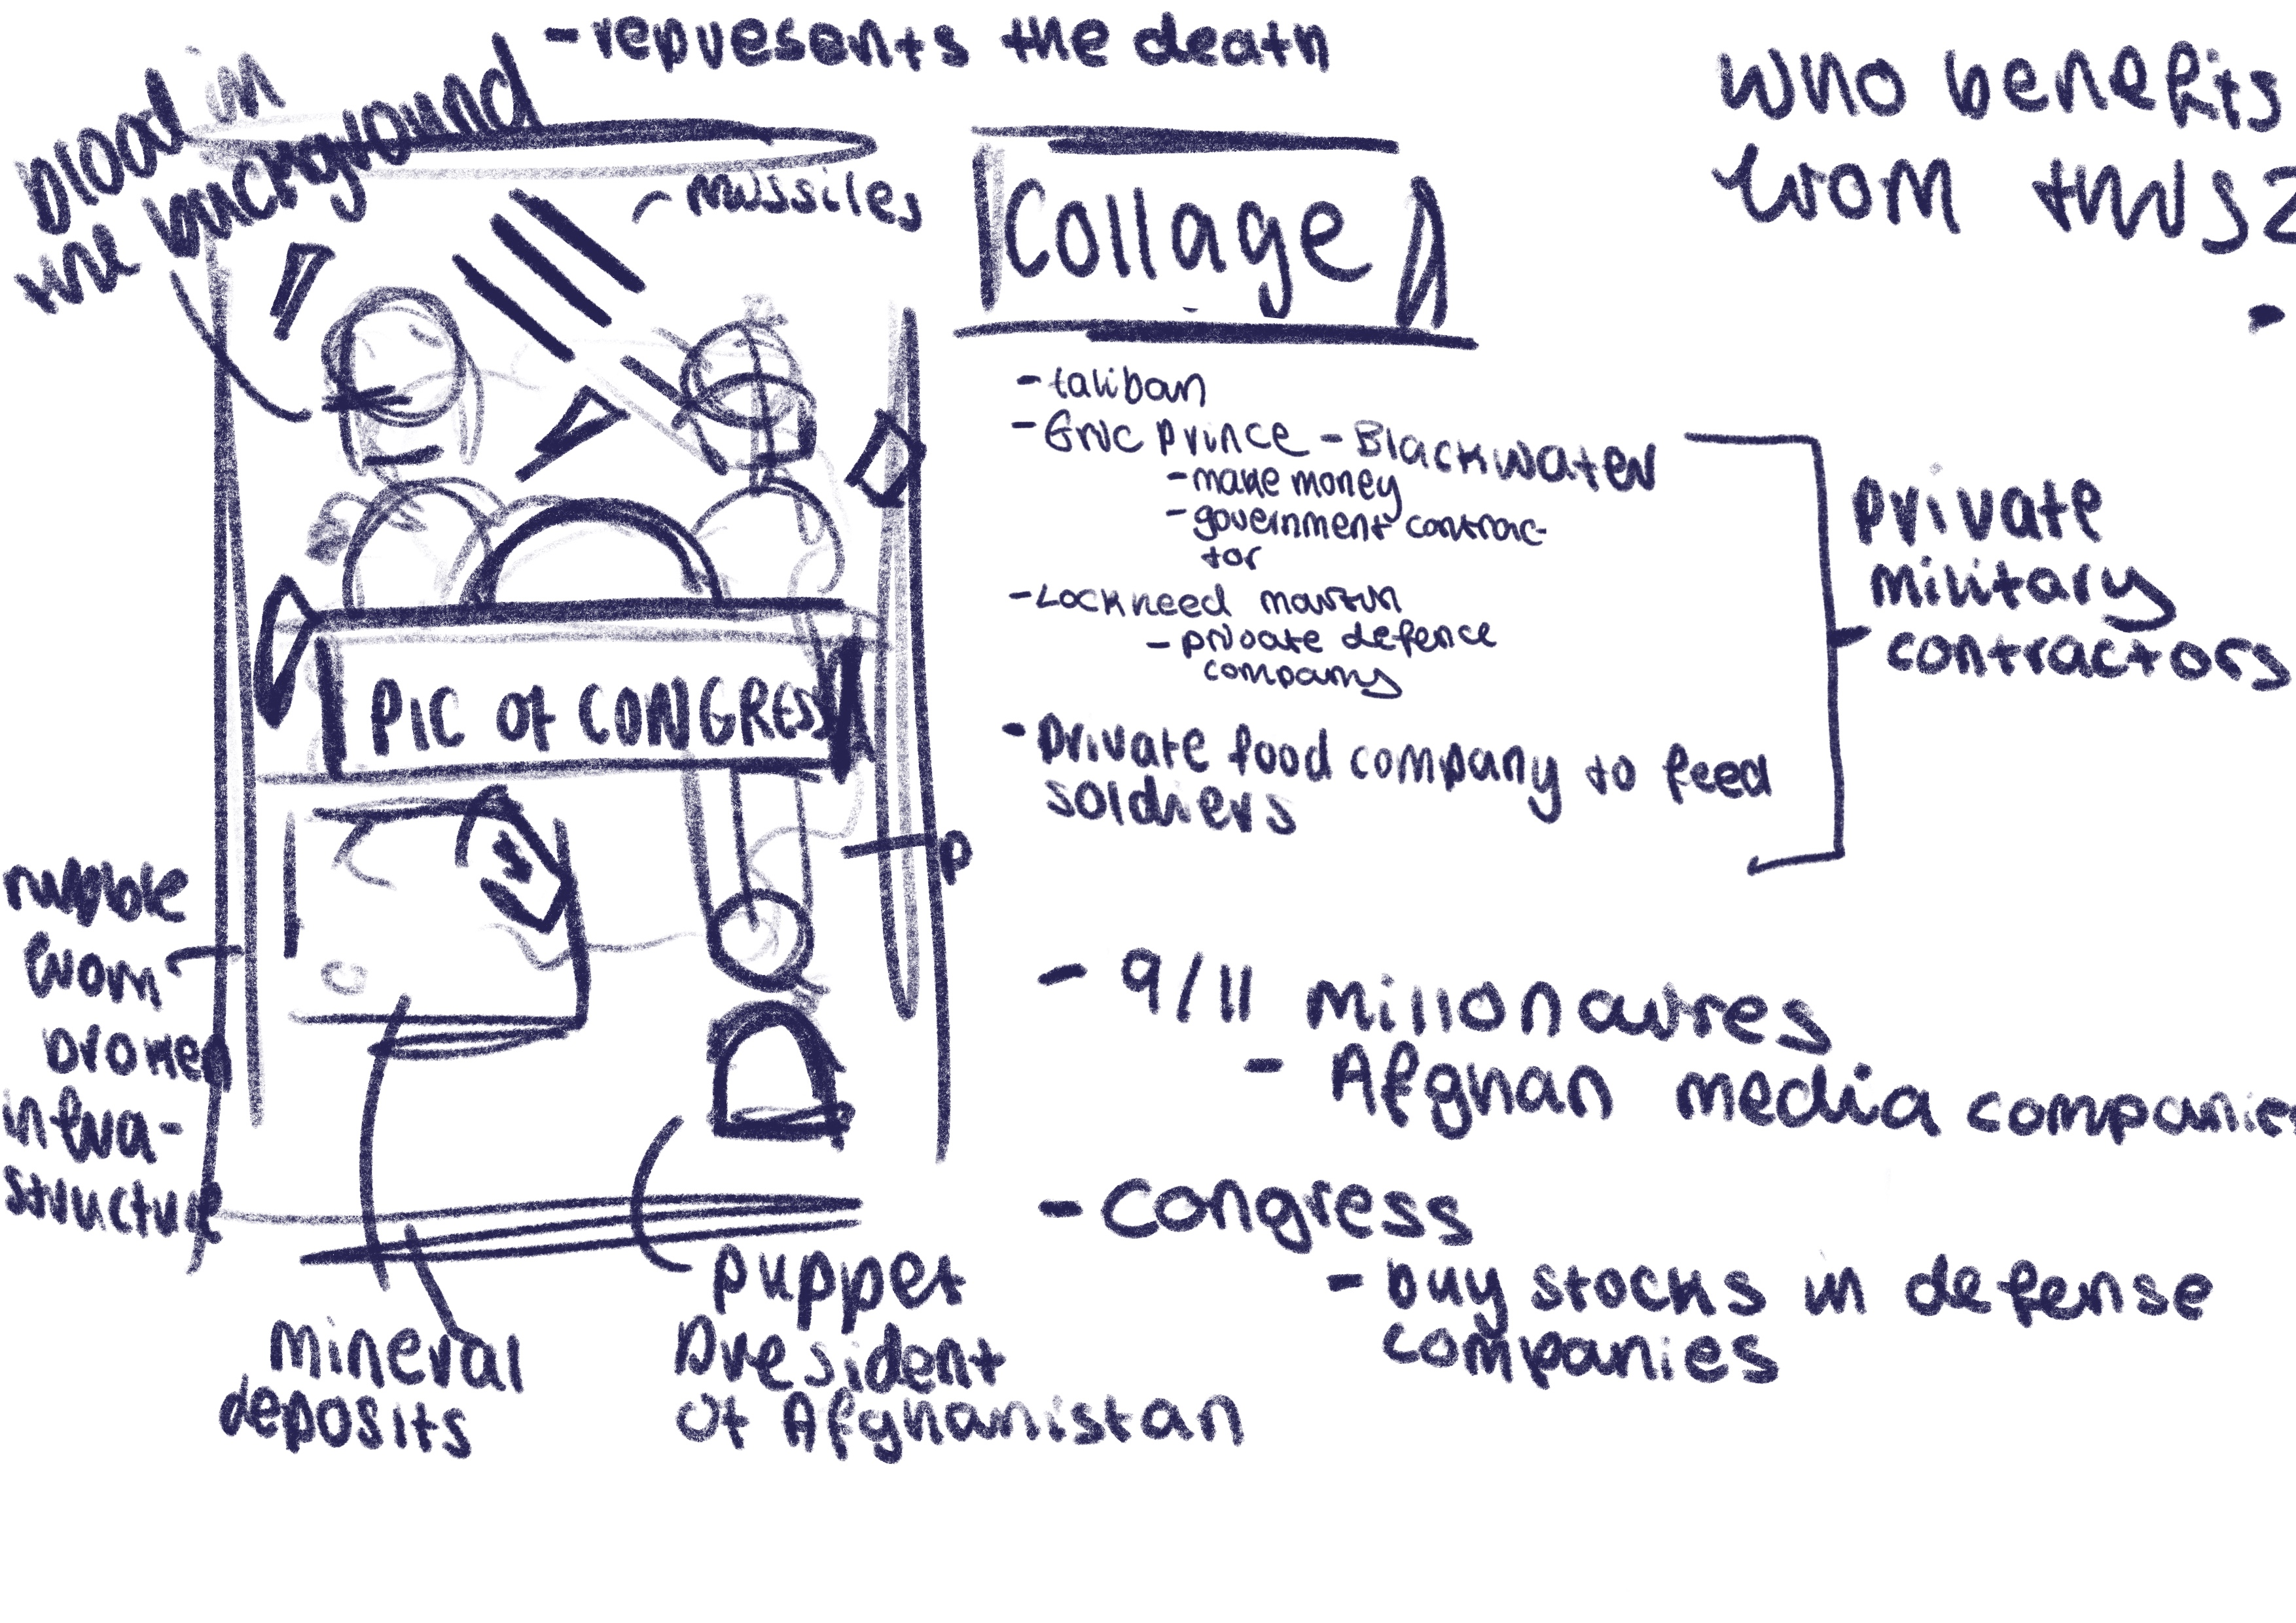 - represents the death
blood in
the background
missiles
PIC Of CONGRESS
rubble
from
broken
infra-
structure
mineral
deposits
puppet
President
of Afghanistan
Collage
- taliban
- Eric Prince - Blackwater
- make money
- government contrac-
tor
- Lockheed martin
- private defence
company
- private food company to feed
soldiers
private
military
contractors
- 9/11 millonaires
- Afghan media companies
- Congress
- buy stocks in defense
companies
Who benefits
from this?